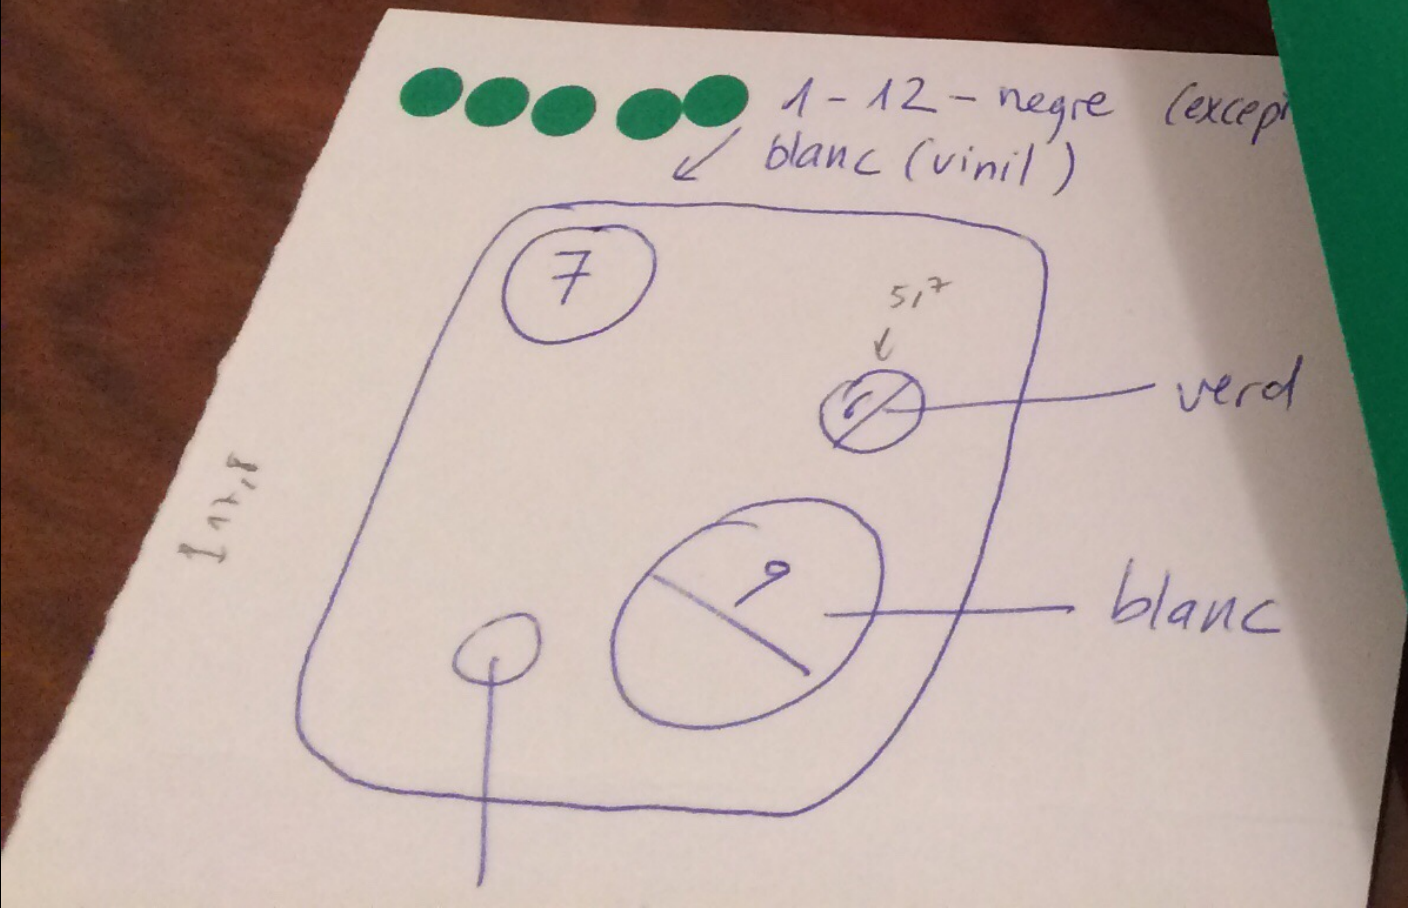 1-12-negre (excep
blanc (vinil)
7
5,7
verd
9
blanc